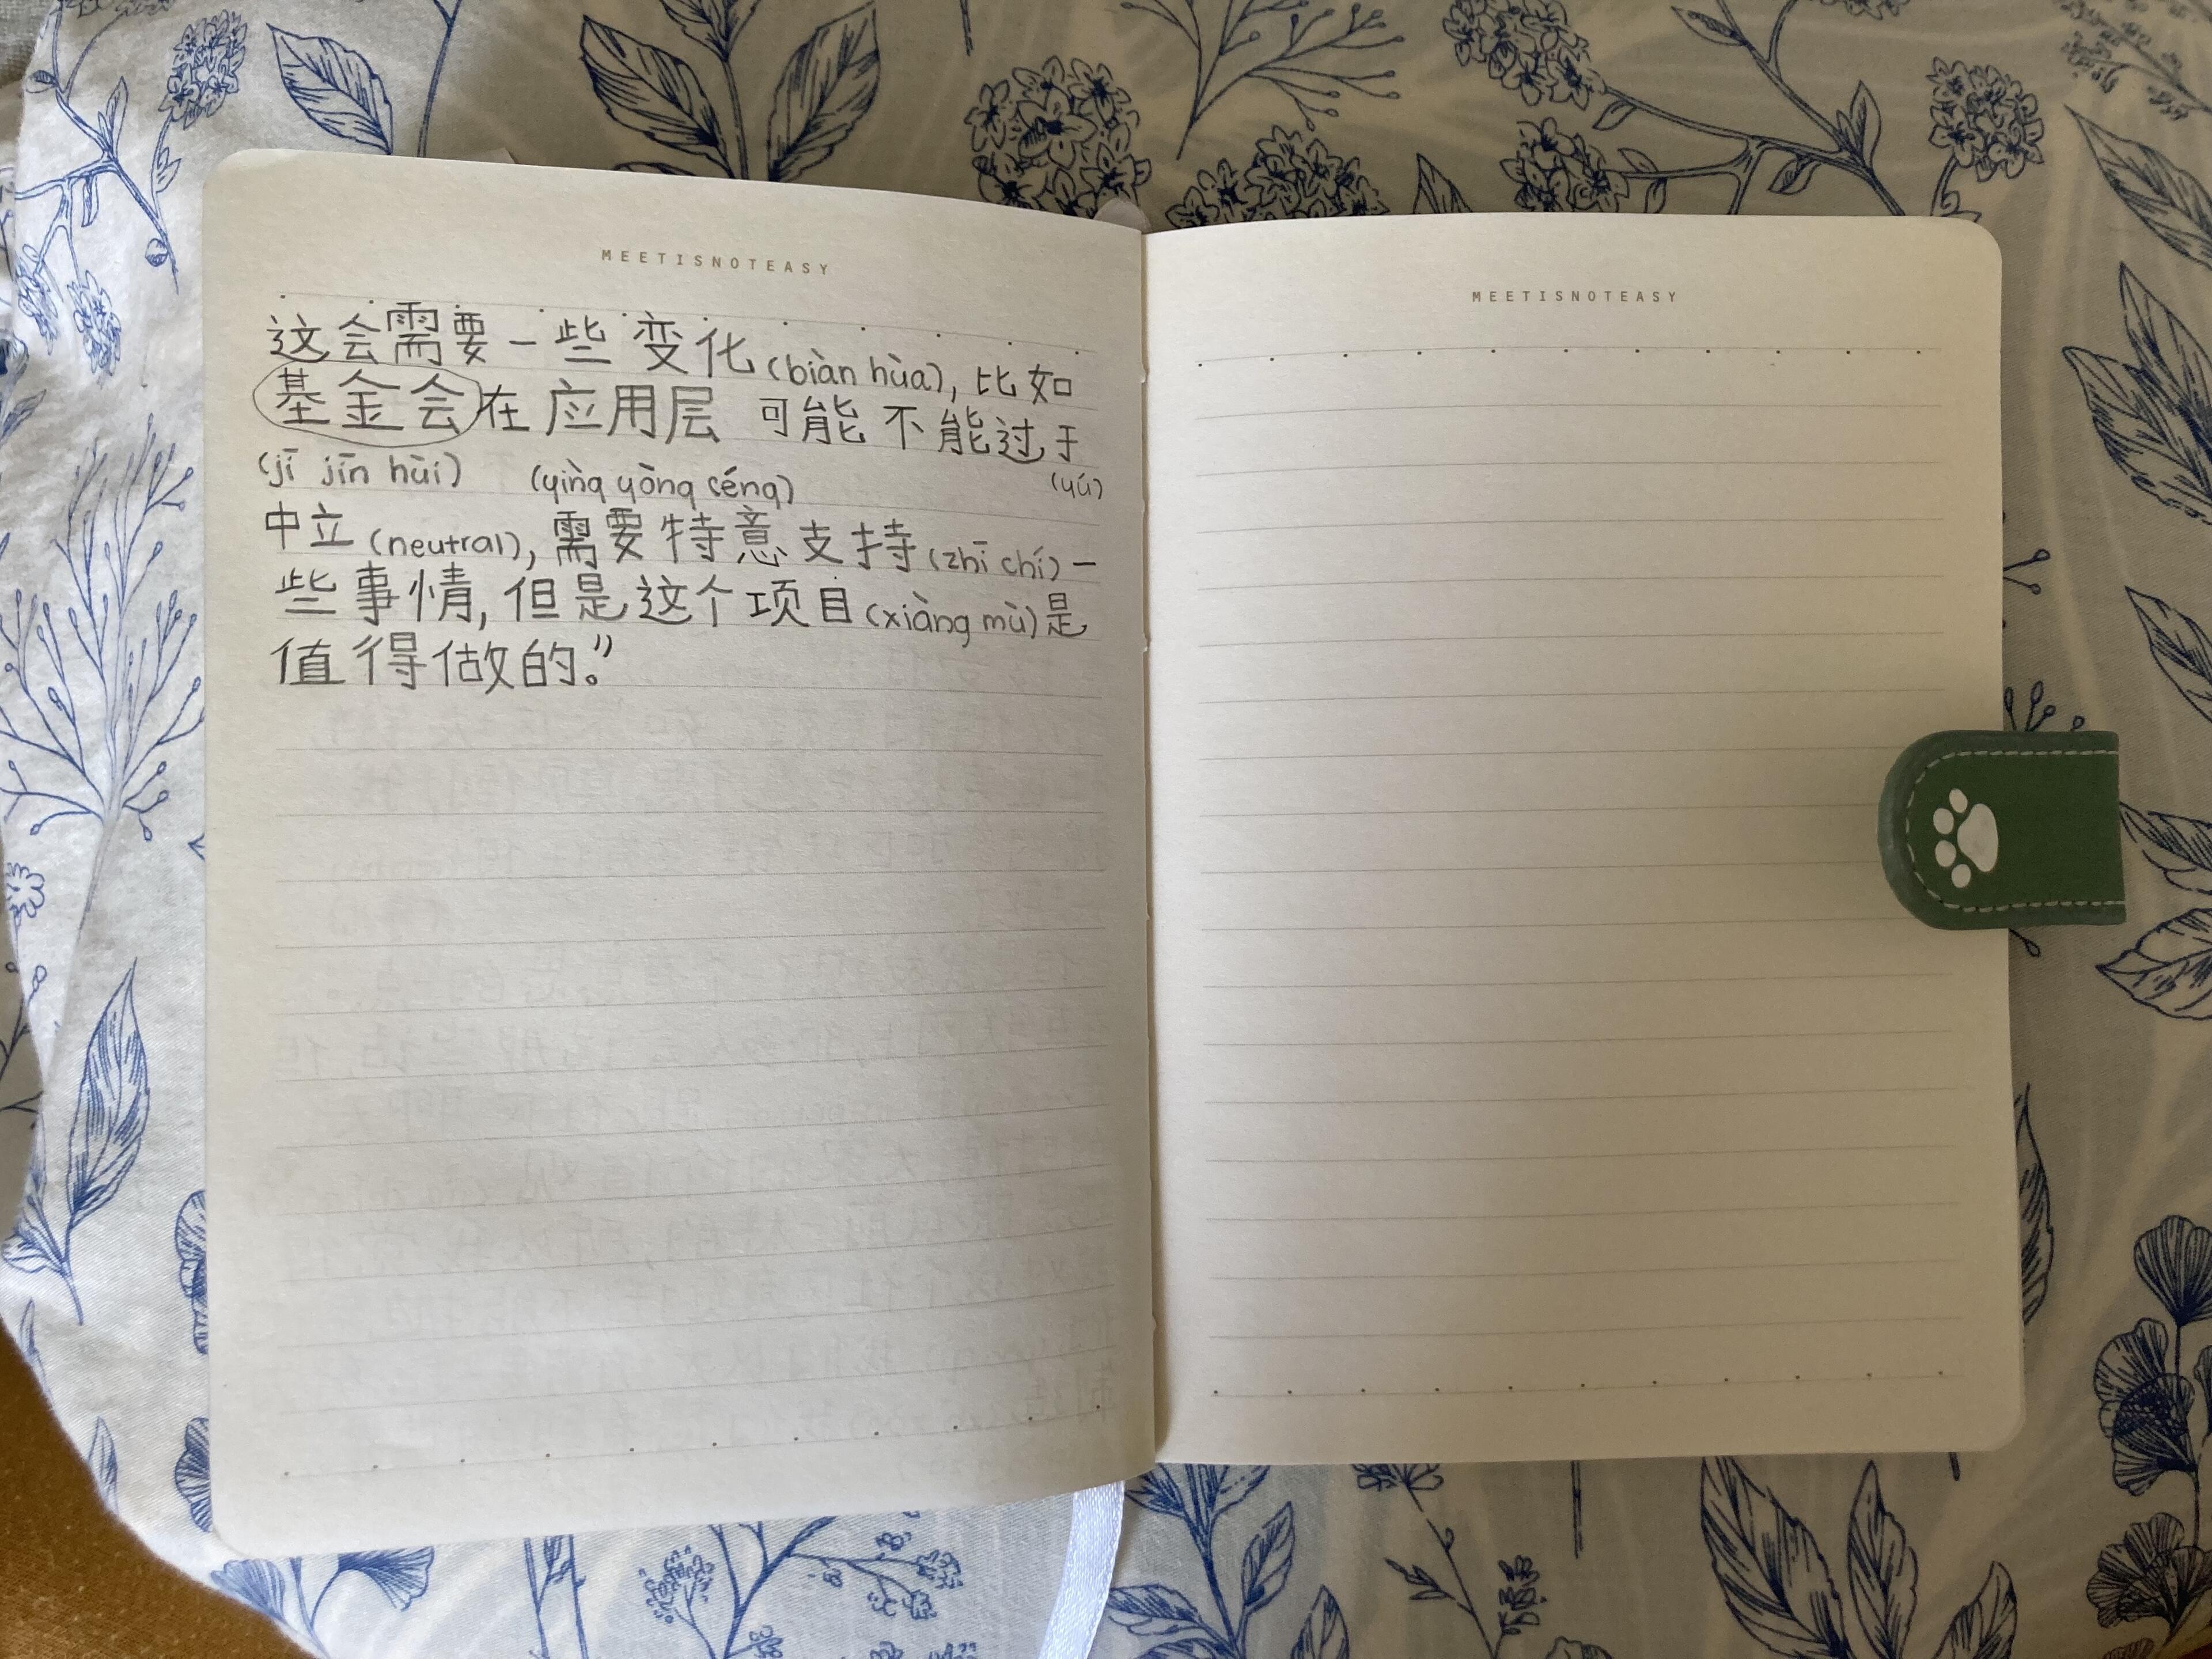 MEETISNOTEASY
这会需要一些变化(biàn hùa), 比如
基金会在应用层 可能不能过于
(jī jīn hùi) (yìng yòng céng) (yú)
中立(neutral), 需要特意支持(zhī chí)一
些事情, 但是这个项目(xiàng mù)是
值得做的。”
MEETISNOTEASY